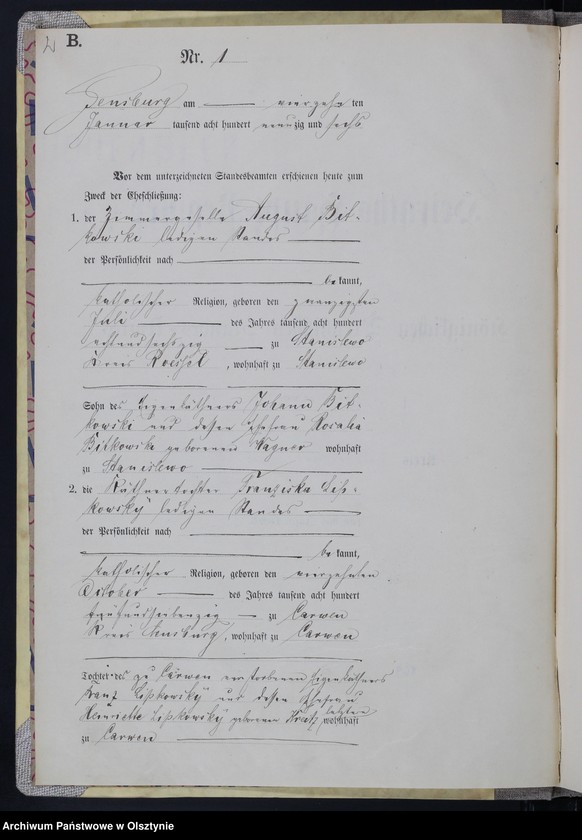 B.
Nr. 1
Sensburg am vierzehn ten
Januar tausend acht hundert neunzig und sechs
Vor dem unterzeichneten Standesbeamten erschienen heute zum
Zweck der Eheschließung:
1. der Zimmergeselle August Bit-
kowski ledigen Standes
der Persönlichkeit nach
be kannt,
katholischer Religion, geboren den zwanzigsten
Juli des Jahres tausend acht hundert
achtundsechszig zu Stanislewo
Kreis Roessel, wohnhaft zu Stanislewo
Sohn des Eigenkäthners Johann Bit-
kowski und dessen Ehefrau Rosalia
Bitkowski geborenen Wagner wohnhaft
zu Stanislewo
2. die Käthnertochter Franziska Lip-
kowsky ledigen Standes
der Persönlichkeit nach
be kannt,
katholischer Religion, geboren den vierzehnten
October des Jahres tausend acht hundert
zu Carwen
Kreis Sensburg, wohnhaft zu Carwen
Tochter des zu Carwen verstorbenen Eigenkäthners
Franz Lipkowsky und dessen Ehefrau
Henriette Lipkowsky geborenen letztere wohnhaft
zu Carwen
Archiwum Państwowe w Olsztynie